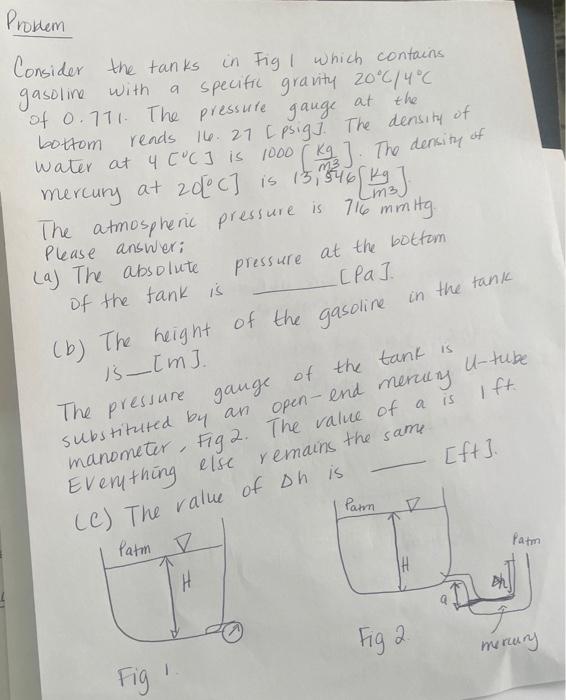 Problem
Consider the tanks in Fig 1 which contains
gasoline with a specific gravity 20°C/4°C
of 0.771. The pressure gauge at the
bottom reads 16.27 [psig]. The density of
water at 4 [°C] is 1000 [kg/m3]. The density of
mercury at 20[°C] is 13,546 [kg/m3]
The atmospheric pressure is 716 mmHg.
Please answer;
(a) The absolute pressure at the bottom
of the tank is ____ [Pa].
(b) The height of the gasoline in the tank
is __ [m].
The pressure gauge of the tank is
substituted by an open-end mercury U-tube
manometer, Fig 2. The value of a is 1 ft.
Everything else remains the same.
(c) The value of Δh is ____ [ft].
Patm
H
Fig 1.
Patm
H
a
Δh
Patm
Fig 2.
mercury